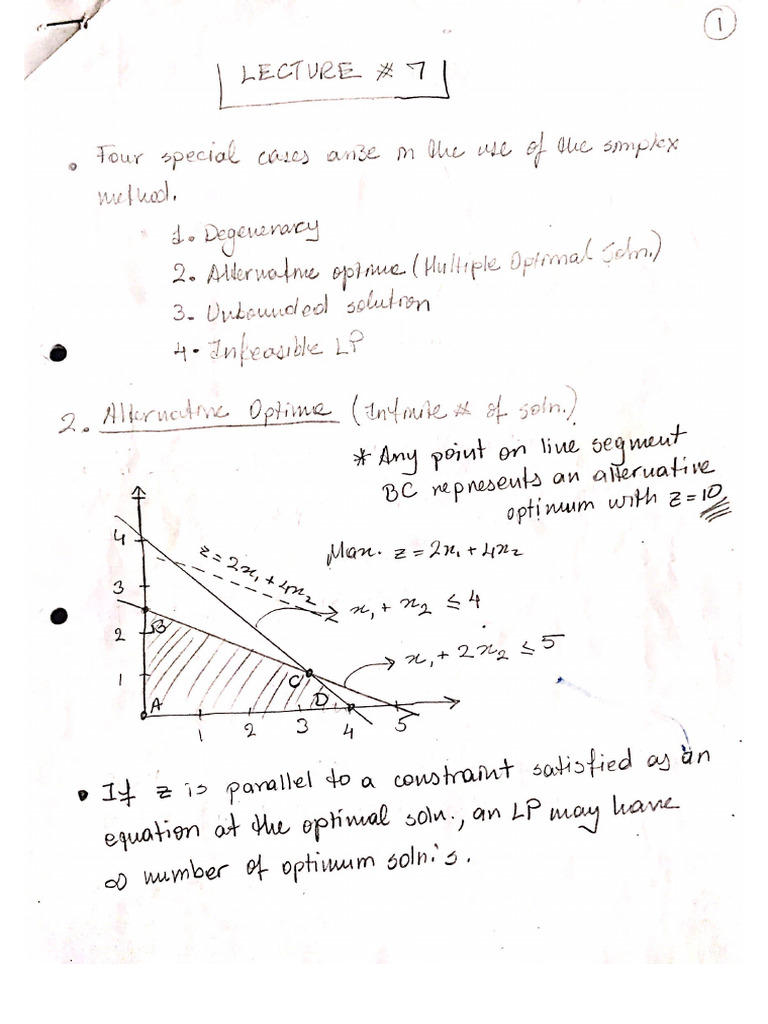 1
LECTURE # 7
• Four special cases arise in the use of the simplex
method.
1. Degeneracy
2. Alternative optima (Multiple Optimal Soln.)
3. Unbounded solution
4. Infeasible LP
2. Alternative Optima (Infinite # of soln.)
* Any point on line segment
BC represents an alternative
optimum with z = 10
Max. z = 2x₁ + 4x₂
4
z = 2x₁ + 4x₂
3
x₁ + x₂ ≤ 4
B
2
x₁ + 2x₂ ≤ 5
1
C
D
A
1 2 3 4 5
• If z is parallel to a constraint satisfied as an
equation at the optimal soln., an LP may have
∞ number of optimum soln's.